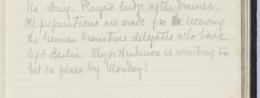 the wing. Played bridge after dinner.
All preparations are made for the receiving
the German Armistice delegates who have
left Berlin. Major Henderson is wanting to
bet on peace by Monday!